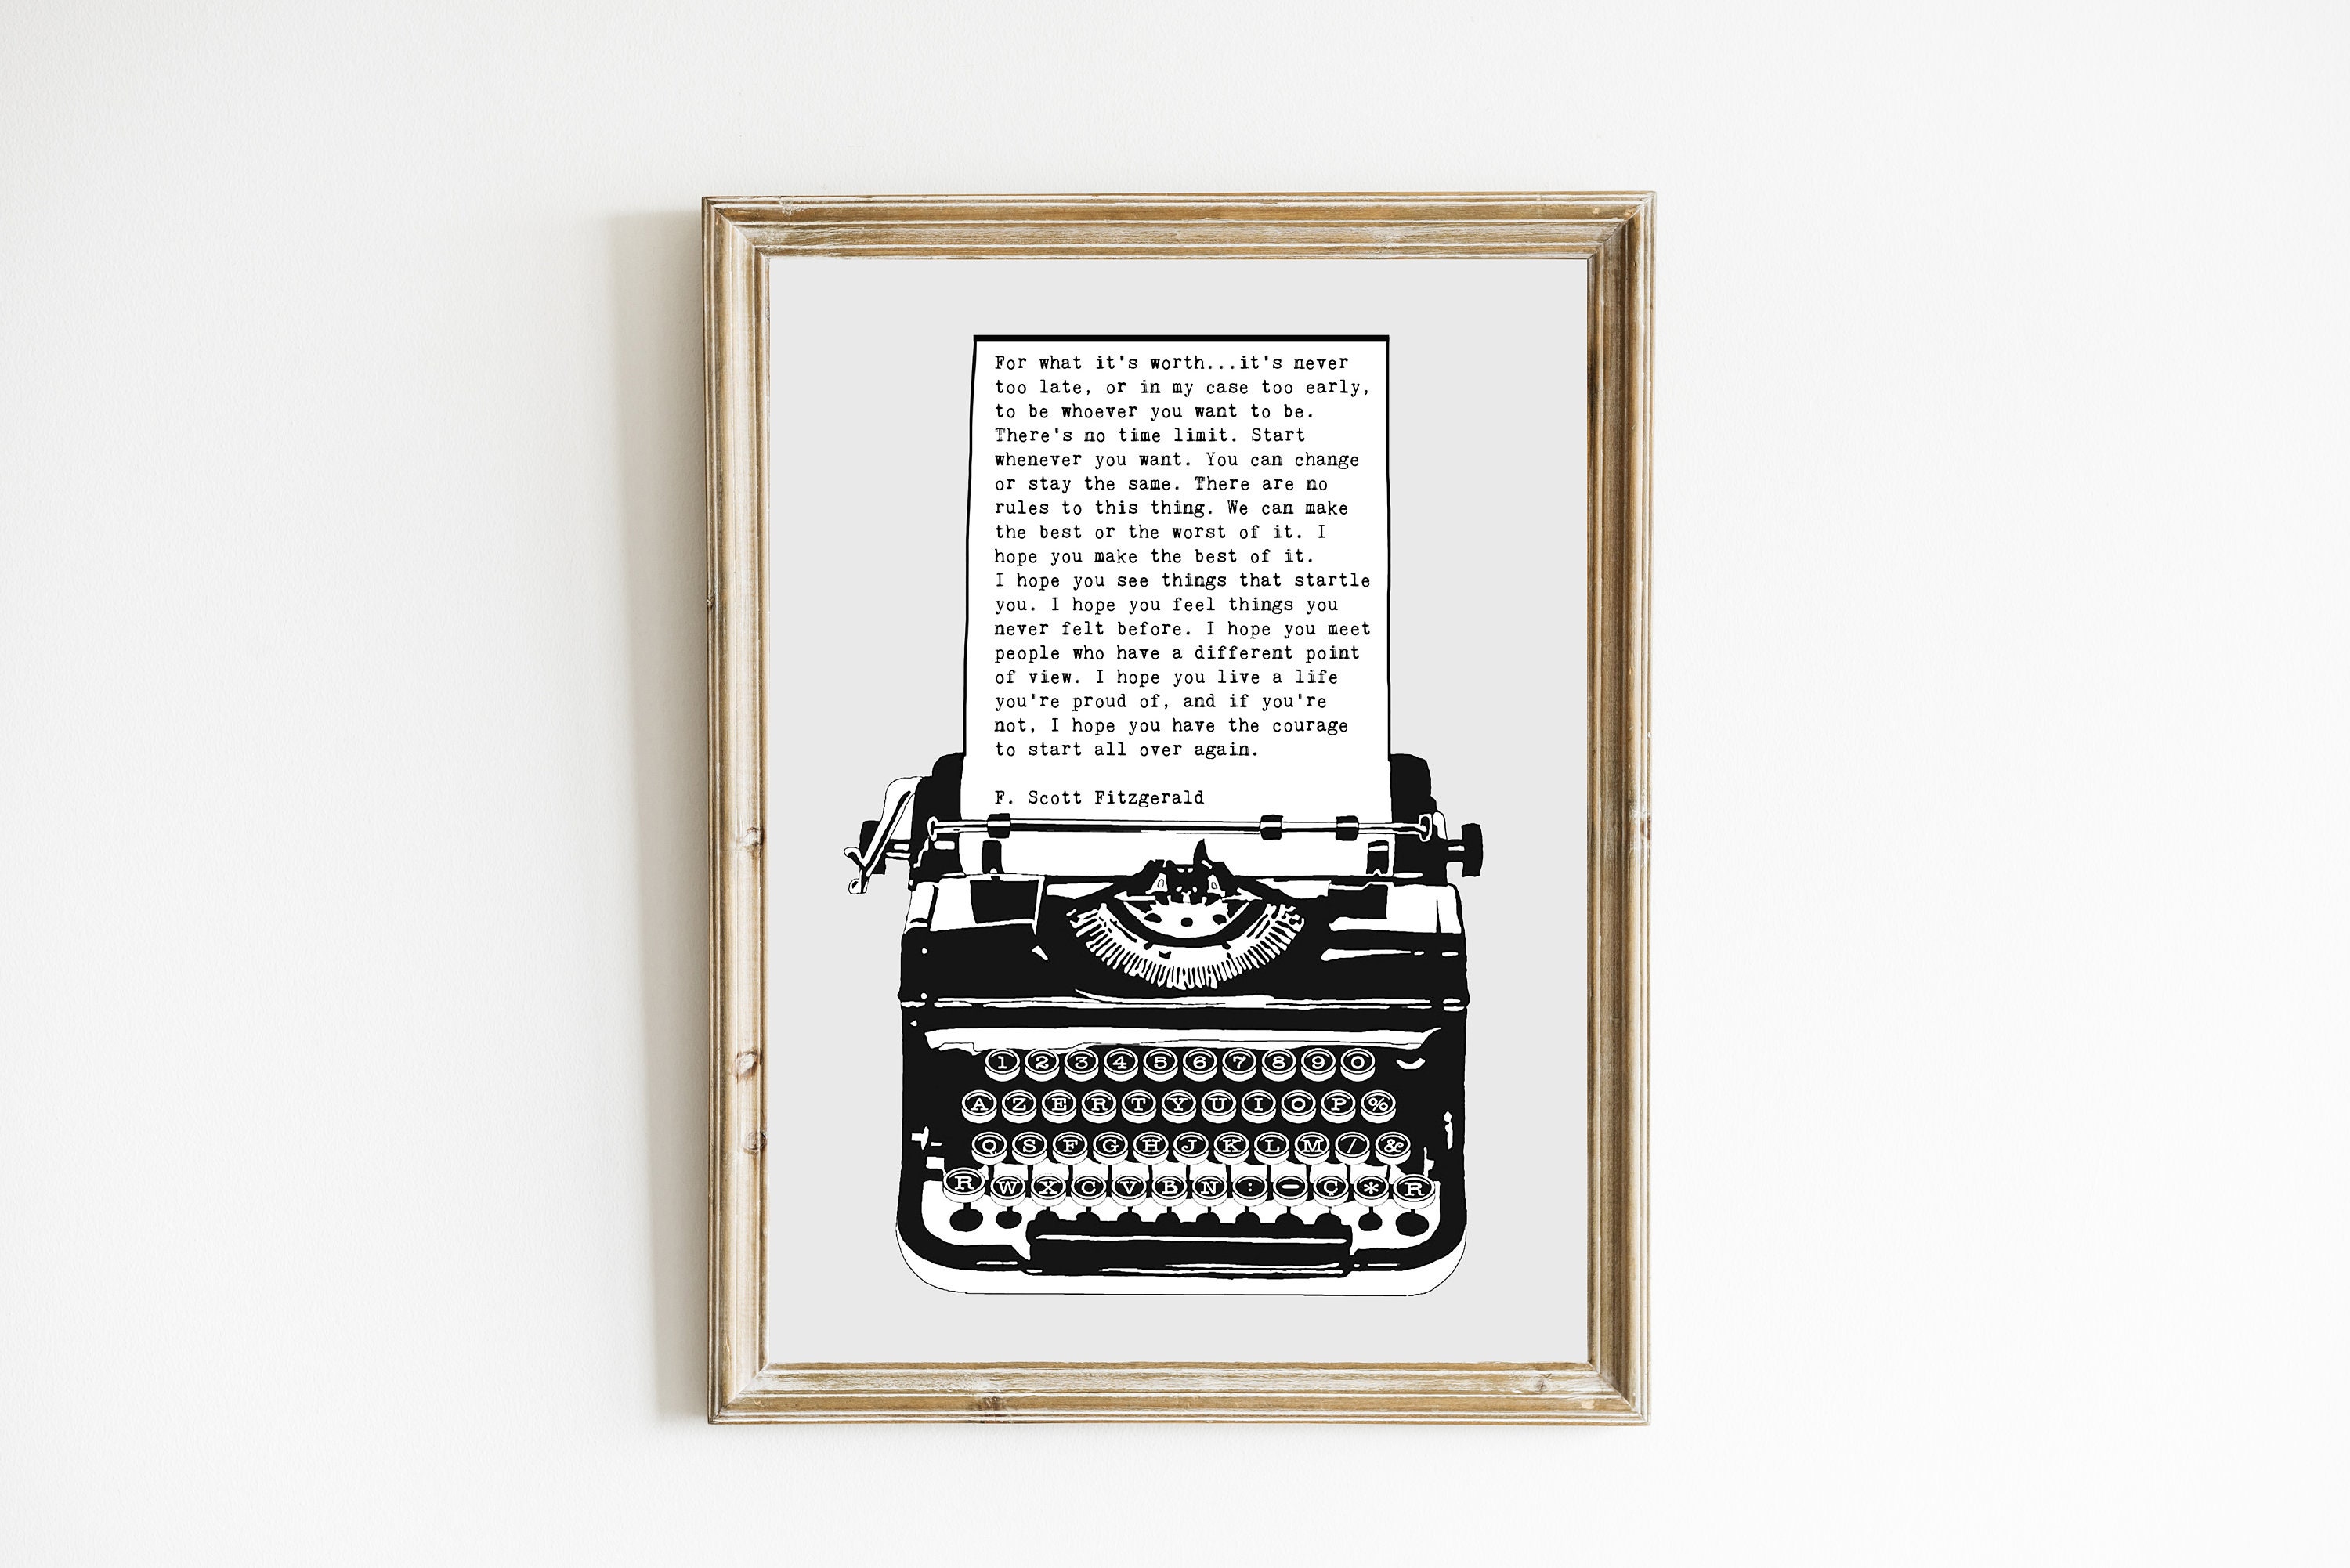 For what it's worth...it's never
too late, or in my case too early,
to be whoever you want to be.
There's no time limit. Start
whenever you want. You can change
or stay the same. There are no
rules to this thing. We can make
the best or the worst of it. I
hope you make the best of it.
I hope you see things that startle
you. I hope you feel things you
never felt before. I hope you meet
people who have a different point
of view. I hope you live a life
you're proud of, and if you're
not, I hope you have the courage
to start all over again.
F. Scott Fitzgerald
1 2 3 4 5 6 7 8 9 0
A Z E R T Y U I O P %
Q S F G H J K L M / &
R W X C V B N : - Ç * R